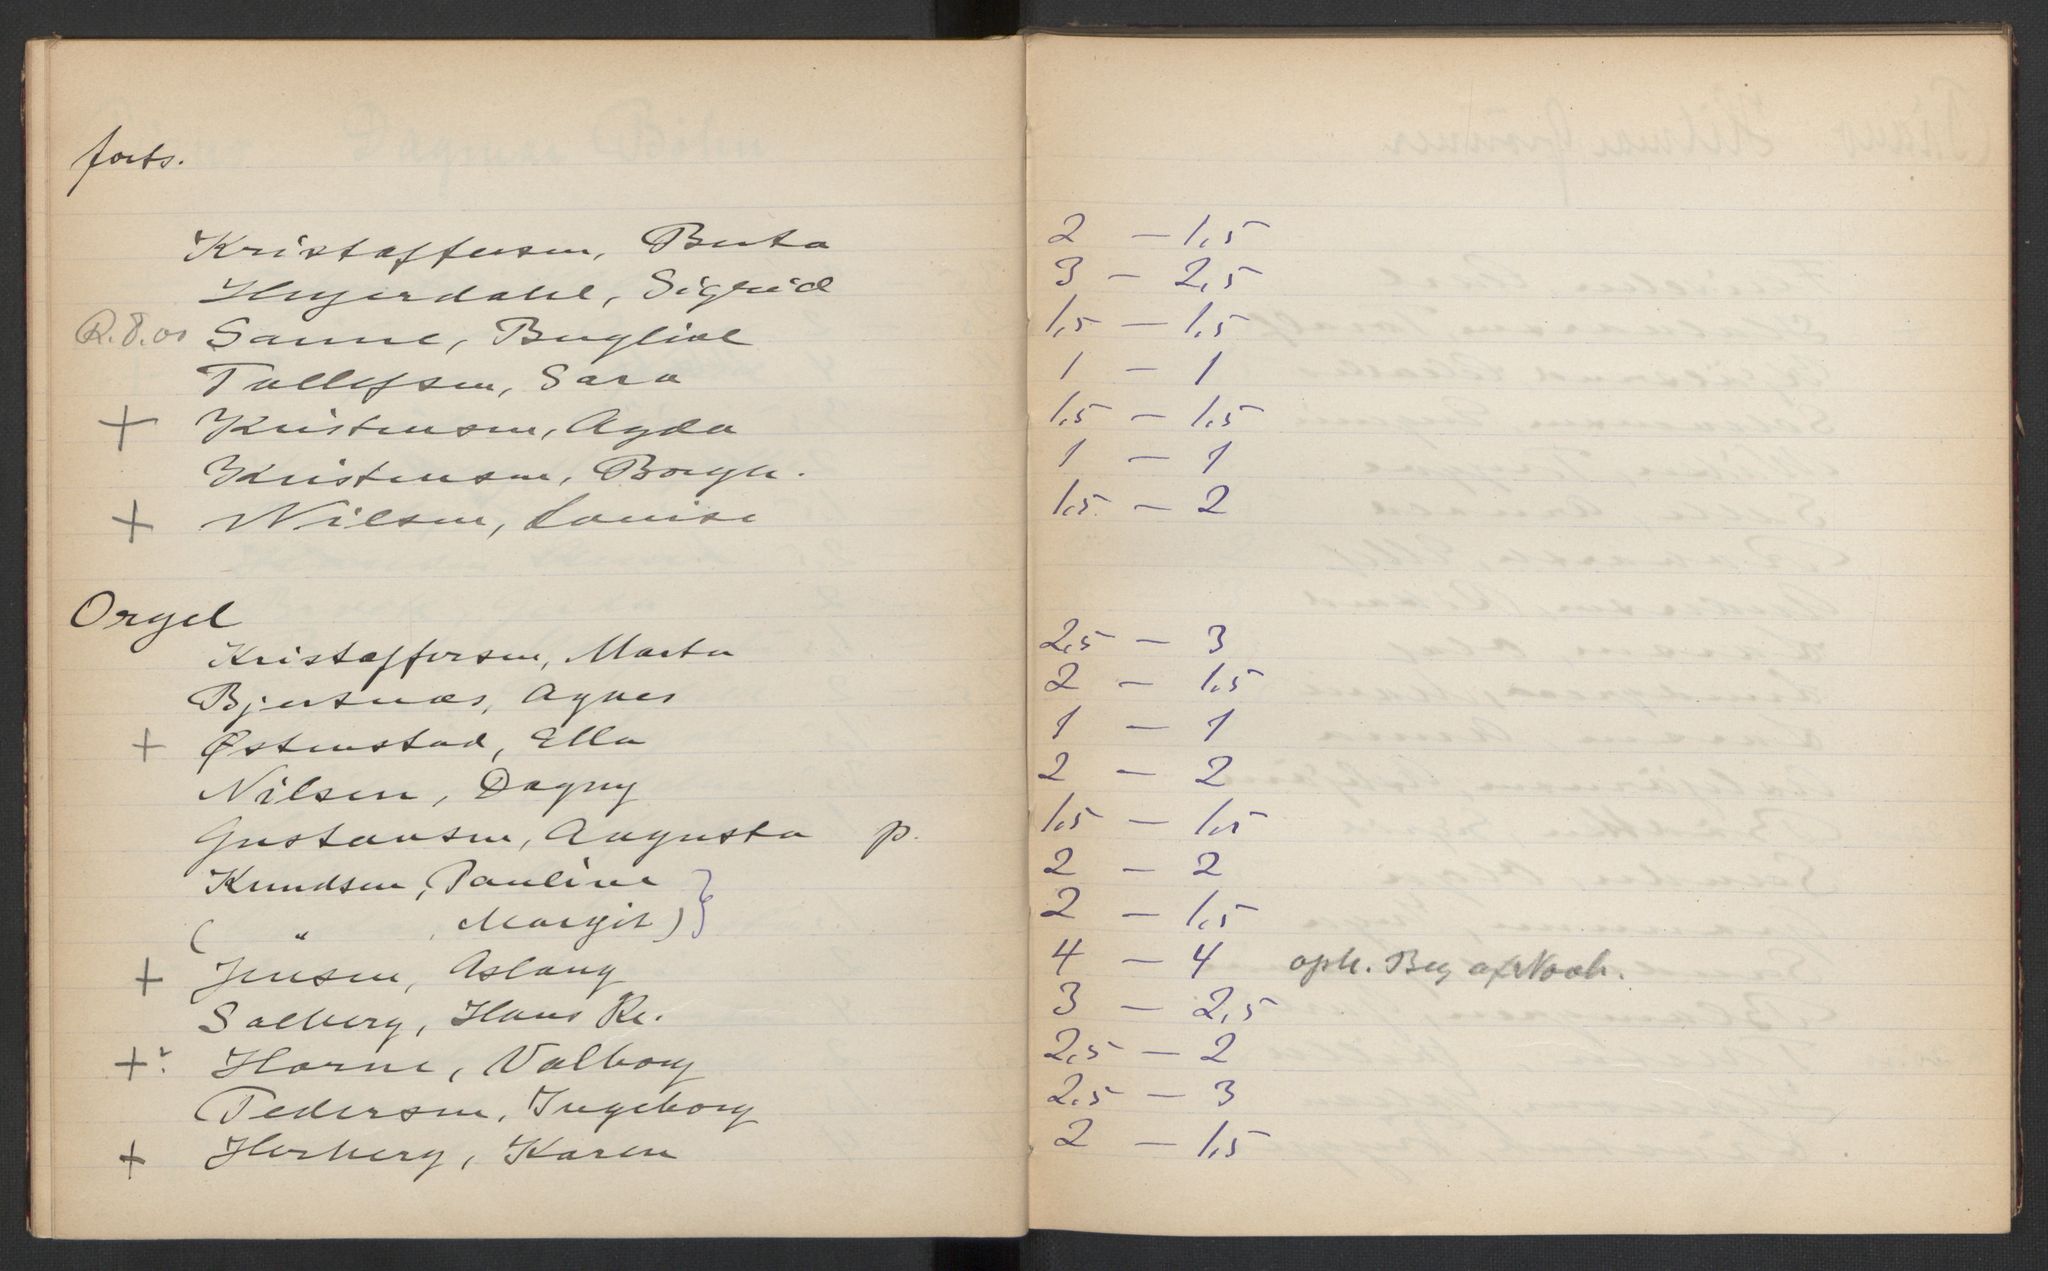 forts.
Kristoffersen, Berta 2 — 1,5
Heyerdahl, Sigrid 3 — 2,5
R.8.00 Sanne, Bugliot 1,5 — 1,5
Tollefsen, Sara 1 — 1
+ Kristensen, Agda 1,5 — 1,5
Kristensen, Borgh. 1 — 1
+ Nilsen, Louise 1,5 — 2
Orgel
Kristoffersen, Marta 2,5 — 3
Bjertnæs, Agnes 2 — 1,5
+ Østenstad, Ella 1 — 1
Nilsen, Dagny 2 — 2
Gustavsen, Augusta p. 1,5 — 1,5
Knudsen, Pauline } 2 — 2
( " , Margit) 2 — 1,5
+ Jensen, Aslaug 4 — 4 oph. Beg af Novbr.
Solberg, Hans Kr. 3 — 2,5
+? Horne, Valborg 2,5 — 2
Pedersen, Ingeborg 2,5 — 3
+ Herberg, Karen 2 — 1,5